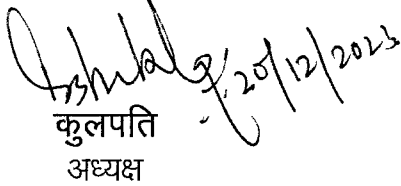 20/12/2023
कुलपति
अध्यक्ष